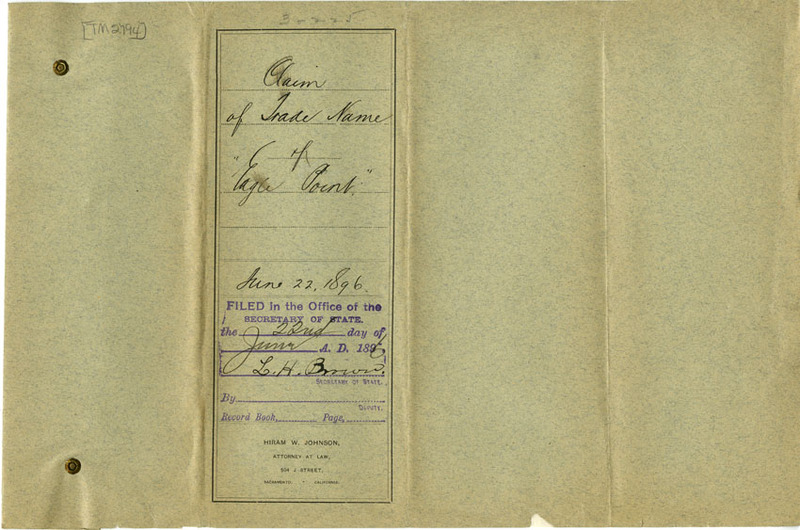 [TM 2794]
3-225
Claim
of Trade Name
of
"Eagle Point."
June 22, 1896.
FILED in the Office of the
SECRETARY OF STATE.
the 22nd day of
June A. D. 1896.
L. H. Brown.
SECRETARY OF STATE.
By
DEPUTY.
Record Book, Page,
HIRAM W. JOHNSON,
ATTORNEY AT LAW,
504 J STREET,
SACRAMENTO, CALIFORNIA.